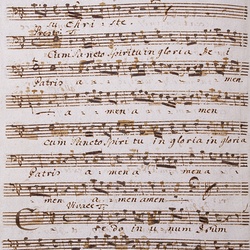 su Chri - ste.
Presto
Cum Sancto Spiritu in gloria De i
Patris a - - men a - - men
a - - - men a - - - men
Cum Sancto Spiri tu in gloria in gloria
Patris a - - - - men a -
men a - men amen
Vivace
Cre do in u num Deum